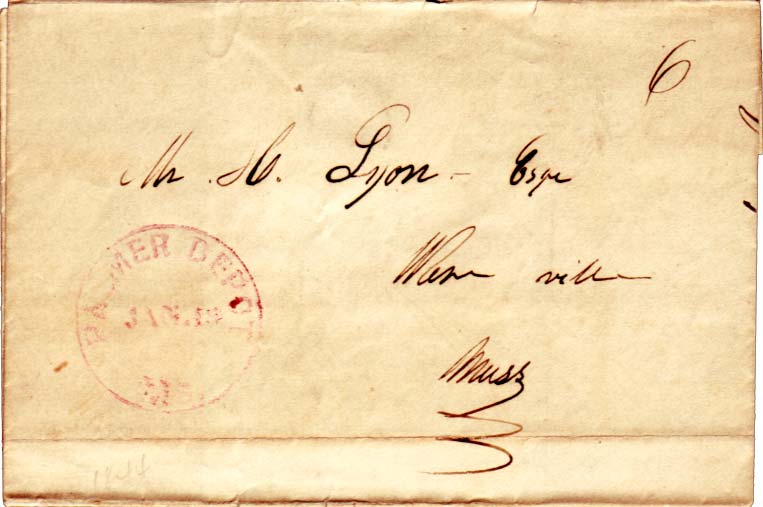 6
Mr. H. Lyon - Esqr
Ware ville
Mass
PALMER DEPOT
JAN. 18
MS.